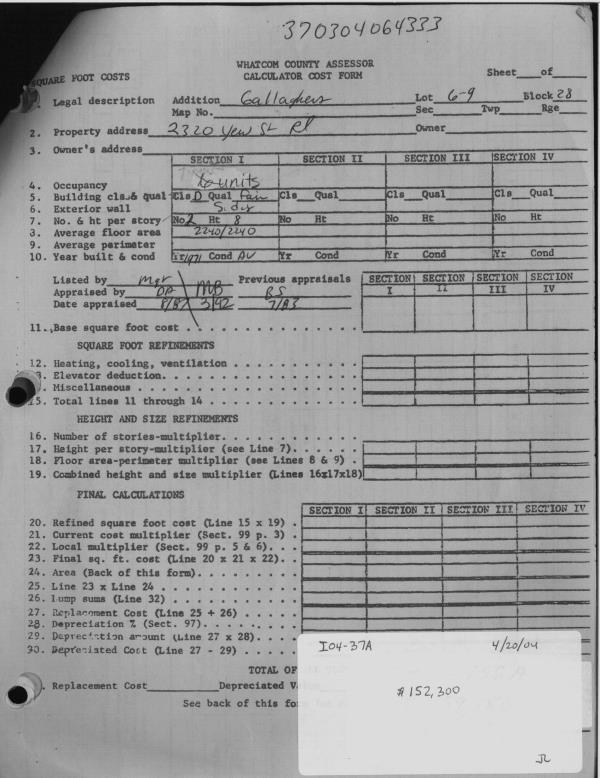 370304064333
WHATCOM COUNTY ASSESSOR
SQUARE FOOT COSTS CALCULATOR COST FORM Sheet____of____
Legal description Addition Gallaghers Lot 6-9 Block 28
Map No. Sec Twp Rge
2. Property address 2320 Yew St Rd Owner
3. Owner's address
SECTION I SECTION II SECTION III SECTION IV
4. Occupancy units
5. Building cls.& qual Cls D Qual Fair Cls Qual Cls Qual Cls Qual
6. Exterior wall Sidg
7. No. & ht per story No 2 Ht 8 No Ht No Ht No Ht
8. Average floor area 2240/2240
9. Average perimeter
10. Year built & cond Yr 1971 Cond AV Yr Cond Yr Cond Yr Cond
Listed by Mgr Previous appraisals SECTION SECTION SECTION SECTION
Appraised by DA MB BS I II III IV
Date appraised 8/87 3/92 7/83
11. Base square foot cost
SQUARE FOOT REFINEMENTS
12. Heating, cooling, ventilation
3. Elevator deduction
. Miscellaneous
15. Total lines 11 through 14
HEIGHT AND SIZE REFINEMENTS
16. Number of stories-multiplier
17. Height per story-multiplier (see Line 7)
18. Floor area-perimeter multiplier (see Lines 8 & 9)
19. Combined height and size multiplier (Lines 16x17x18)
FINAL CALCULATIONS
SECTION I SECTION II SECTION III SECTION IV
20. Refined square foot cost (Line 15 x 19)
21. Current cost multiplier (Sect. 99 p. 3)
22. Local multiplier (Sect. 99 p. 5 & 6)
23. Final sq. ft. cost (Line 20 x 21 x 22)
24. Area (Back of this form)
25. Line 23 x Line 24
26. Lump sums (Line 32)
27. Replacement Cost (Line 25 + 26)
28. Depreciation % (Sect. 97)
29. Depreciation amount (Line 27 x 28)
30. Depreciated Cost (Line 27 - 29)
I04-37A 4/20/04
TOTAL OF
$152,300
. Replacement Cost Depreciated V
See back of this fo
JL